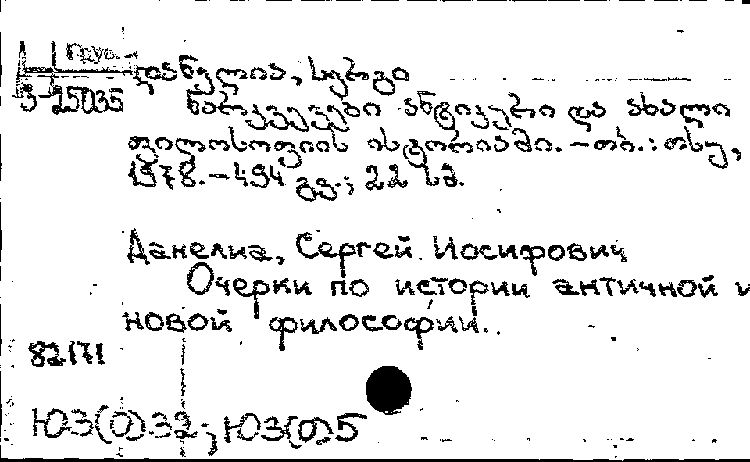 3-25035
დანელია, სერგი
ნარკვევები ანტიკური და ახალი
ფილოსოფიის ისტორიაში. – თბ.: თსუ,
1978. – 494 გვ.; 22 სმ.
Данелиа, Сергей Иосифович
Очерки по истории античной и
новой философии.
82171
Ю3(0)32; Ю3(0)5